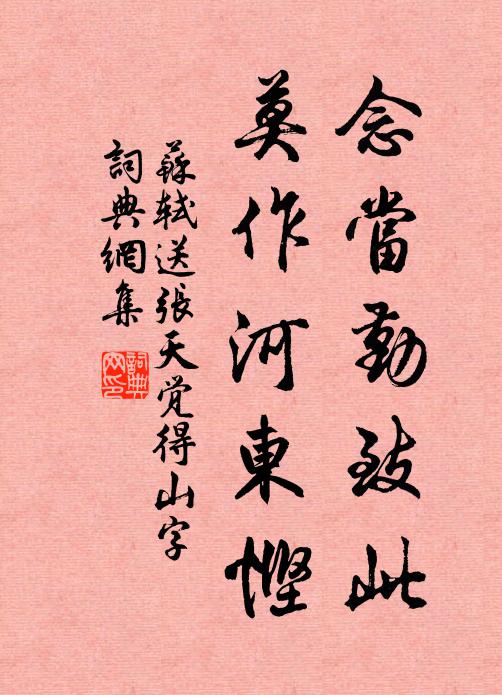 念當勤致此
莫作河東慳
蘇軾送張天覺得山字
詞典網集
詞典网印